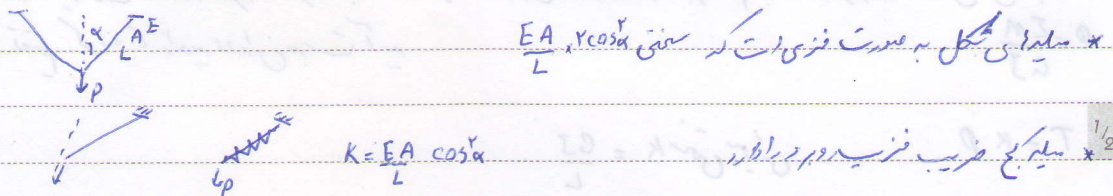 * میله‌های شکل به صورت فنری است که سختی EA/L × ۲cos²α
α L A E
P
* میله کج ضریب فنر روبرو را دارد K = EA/L cos²α
P
1/2